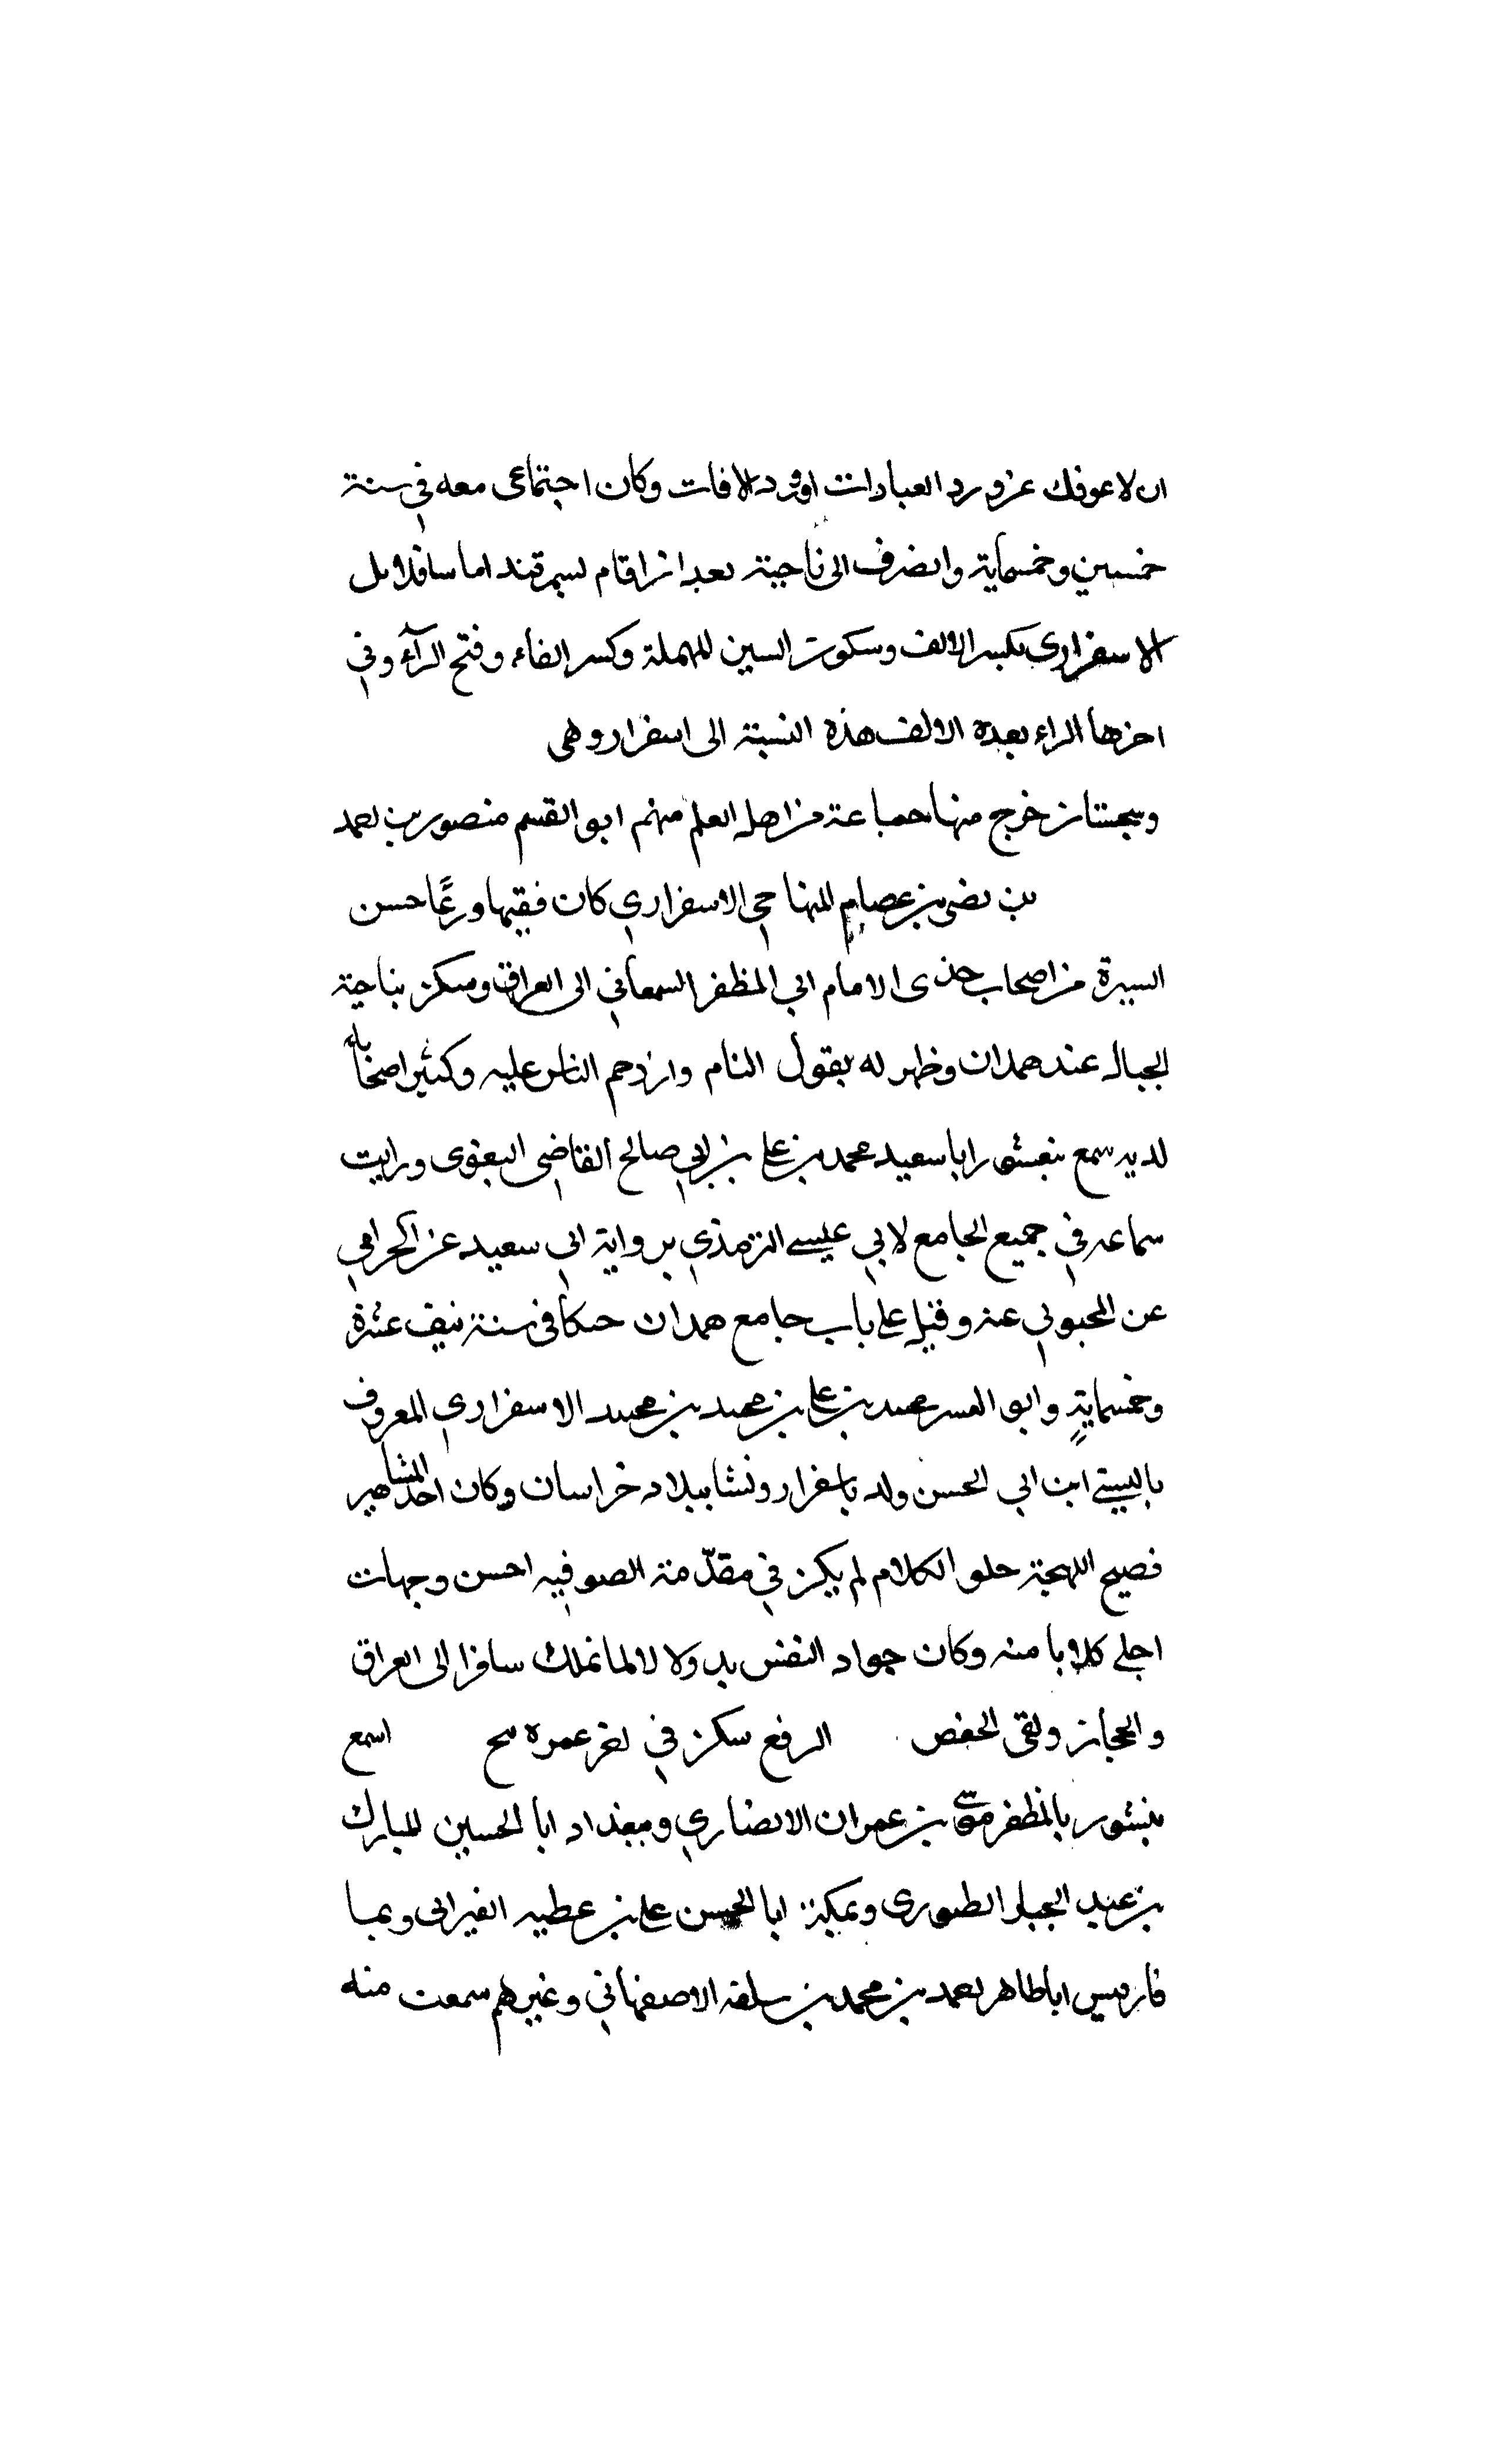 ان لا عوفك عن ورد العبادات اورد الافات وكان اجتماعى معه في سنة
خمسين وخمسماية وانصرف الى ناحيته بعد ان اقام بسمرقند اياما قلايل
الاسفزارى بكسر الالف وسكون السين المهملة وكسر الفاء وفتح الزآء وفي
اخرها الراء بعده الالف هذه النسبة الى اسفزار وهى
وسجستان خرج منها جماعة من اهل العلم منهم ابو القسم منصور بن احمد
بن بن عصام المنهاجي الاسفزاري كان فقيها ورعًا حسن
السيرة من اصحاب جدى الامام ابي المظفر السمعاني الى العراق وسكن بناحية
الجبال عند همدان وظهر له بقول التام وازدحم الناس عليه وكثير اصحابه
لديه سمع ببغشور ابا سعيد محمد بن علي بن ابي صالح القاضي البغوى ورايت
سماعه في جميع الجامع لابي عيسے الترمذي برواية ابي سعيد عن الجراحي
عن المحبوبي عنه وقتل على باب جامع همدان في سنة نيف عشرة
وخمسماية وابو محمد بن علي بن محمد بن محمد الاسفزاري المعروف
ابن ابي الحسن ولد باسفزار ونشا ببلاد خراسان وكان احد المشاهير
فصيح اللهجة حلو الكلام لم يكن في مقدّمة الصوفيه احسن وجهات
اجلي كلابا منه وكان جواد النفس بدولا لما تملك سافر الى العراق
والحجاز ولقى الحفص الرفع سكن في اسمع
ببغشور بالمظفر موسى بن عمران الانصاري وببغداد ابا الحسين المبارك
بن عبد الجبار الطيورى وبمكة ابا الحسن علي بن عطيه وبميا
فارقين ابا طاهر احمد بن محمد بن سلفه الاصفهاني وغيرهم سمعت منه